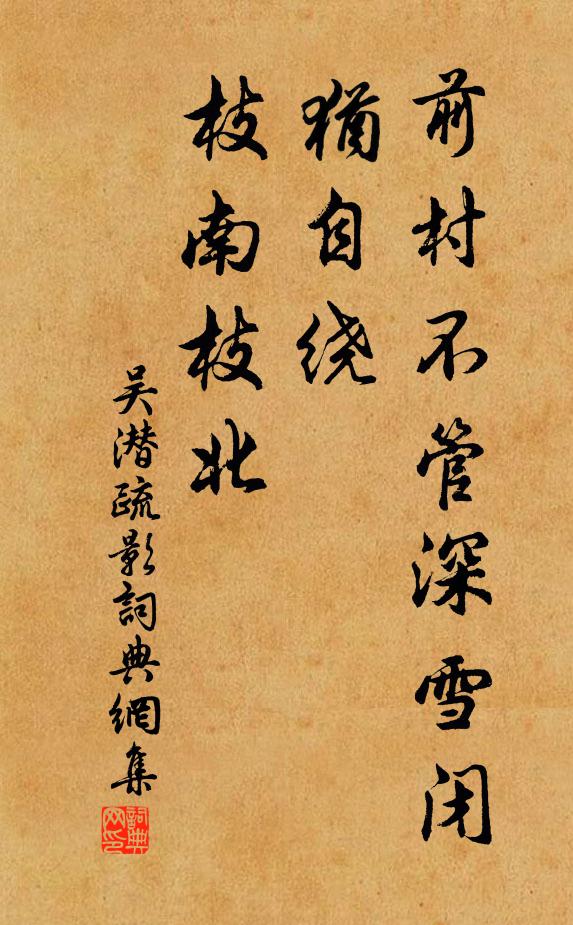 前村不管深雪闭
犹自绕
枝南枝北
吴潜疏影詞典網集
詞典
网印